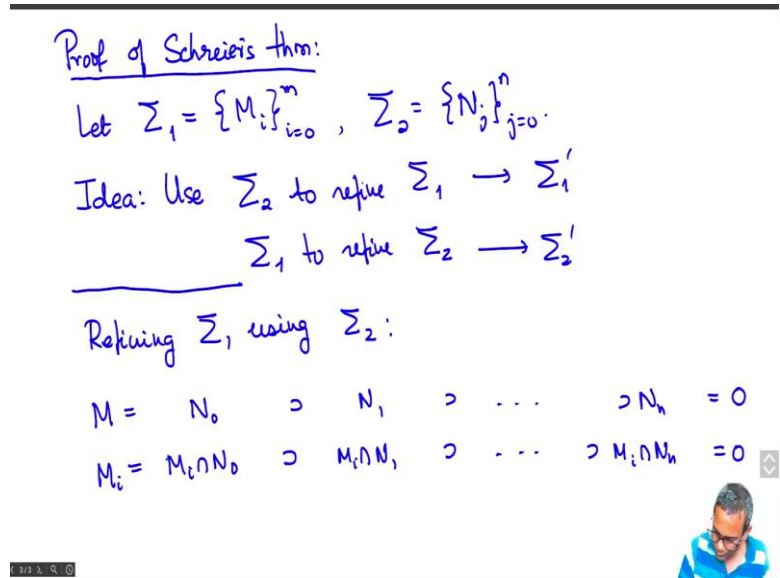 Proof of Schreier's thm:
Let Σ₁ = {Mᵢ}ᵐᵢ₌₀ , Σ₂ = {Nⱼ}ⁿⱼ₌₀.
Idea: Use Σ₂ to refine Σ₁ → Σ₁'
Σ₁ to refine Σ₂ → Σ₂'
Refining Σ₁ using Σ₂:
M = N₀ ⊃ N₁ ⊃ ... ⊃ Nₙ = 0
Mᵢ = Mᵢ∩N₀ ⊃ Mᵢ∩N₁ ⊃ ... ⊃ Mᵢ∩Nₙ = 0
3/3